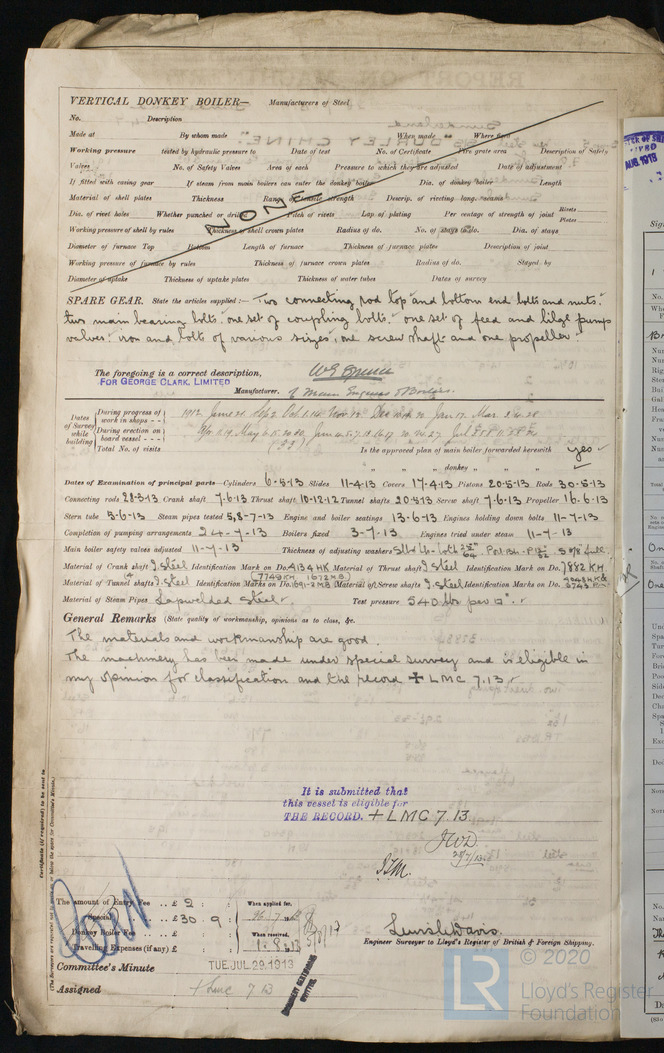 VERTICAL DONKEY BOILER— Manufacturers of Steel
No. Description
Made at By whom made When made Where fixed
Working pressure tested by hydraulic pressure to Date of test No. of Certificate Fire grate area Description of Safety
Valves No. of Safety Valves Area of each Pressure to which they are adjusted Date of adjustment
If fitted with casing gear If steam from main boilers can enter the donkey boiler Dia. of donkey boiler Length
Material of shell plates Thickness Range of tensile strength Descrip. of riveting long. seams
NONE
Dia. of rivet holes Whether punched or drilled Pitch of rivets Lap of plating Per centage of strength of joint Rivets Plates
Working pressure of shell by rules Thickness of shell crown plates Radius of do. No. of stays to do. Dia. of stays
Diameter of furnace Top Bottom Length of furnace Thickness of furnace plates Description of joint
Working pressure of furnace by rules Thickness of furnace crown plates Radius of do. Stayed by
Diameter of uptake Thickness of uptake plates Thickness of water tubes Dates of survey
SPARE GEAR. State the articles supplied:— Two connecting rod top and bottom end bolts and nuts.
two main bearing bolts. one set of coupling bolts. one set of feed and bilge pump
valves. iron and bolts of various sizes, one screw shaft and one propeller.
The foregoing is a correct description,
FOR GEORGE CLARK, LIMITED
Manufacturer. of Main Engines & Boilers.
Dates of Survey while building
During progress of work in shops
During erection on board vessel
Total No. of visits
(33)
Is the approved plan of main boiler forwarded herewith yes
" " " donkey " " "
Dates of Examination of principal parts—Cylinders 6-5-13 Slides 11-4-13 Covers 17-4-13 Pistons 20-5-13 Rods 30-5-13
Connecting rods 28-3-13 Crank shaft 7-6-13 Thrust shaft 10-12-12 Tunnel shafts 20-5-13 Screw shaft 7-6-13 Propeller 16-6-13
Stern tube 5-6-13 Steam pipes tested 5,8-7-13 Engine and boiler seatings 13-6-13 Engines holding down bolts 11-7-13
Completion of pumping arrangements 24-7-13 Boilers fixed 3-7-13 Engines tried under steam 11-7-13
Main boiler safety valves adjusted 11-7-13 Thickness of adjusting washers
Material of Crank shaft I. Steel Identification Mark on Do. 4134HK Material of Thrust shaft I Steel Identification Mark on Do. 7882KH
Material of Tunnel shafts I. Steel Identification Marks on Do. Material of Screw shafts I. Steel Identification Marks on Do.
Material of Steam Pipes Lapwelded Steel Test pressure 540 lbs per □".
General Remarks (State quality of workmanship, opinions as to class, &c.
The materials and workmanship are good.
The machinery has been made under special survey and is eligible in
my opinion for classification and the record + LMC 7.13
It is submitted that
this vessel is eligible for
THE RECORD. + LMC 7.13.
JWD.
28/7/13
The amount of Entry Fee .. £ 2 : :
Special .. £ 30 . 9 :
Donkey Boiler Fee .. £ : :
Travelling Expenses (if any) £ : :
When applied for,
When received,
1.8.13
Engineer Surveyor to Lloyd's Register of British & Foreign Shipping.
Committee's Minute TUE. JUL. 29. 1913
Assigned + Lmc 7 13
© 2020
LR
Lloyd's Register
Foundation